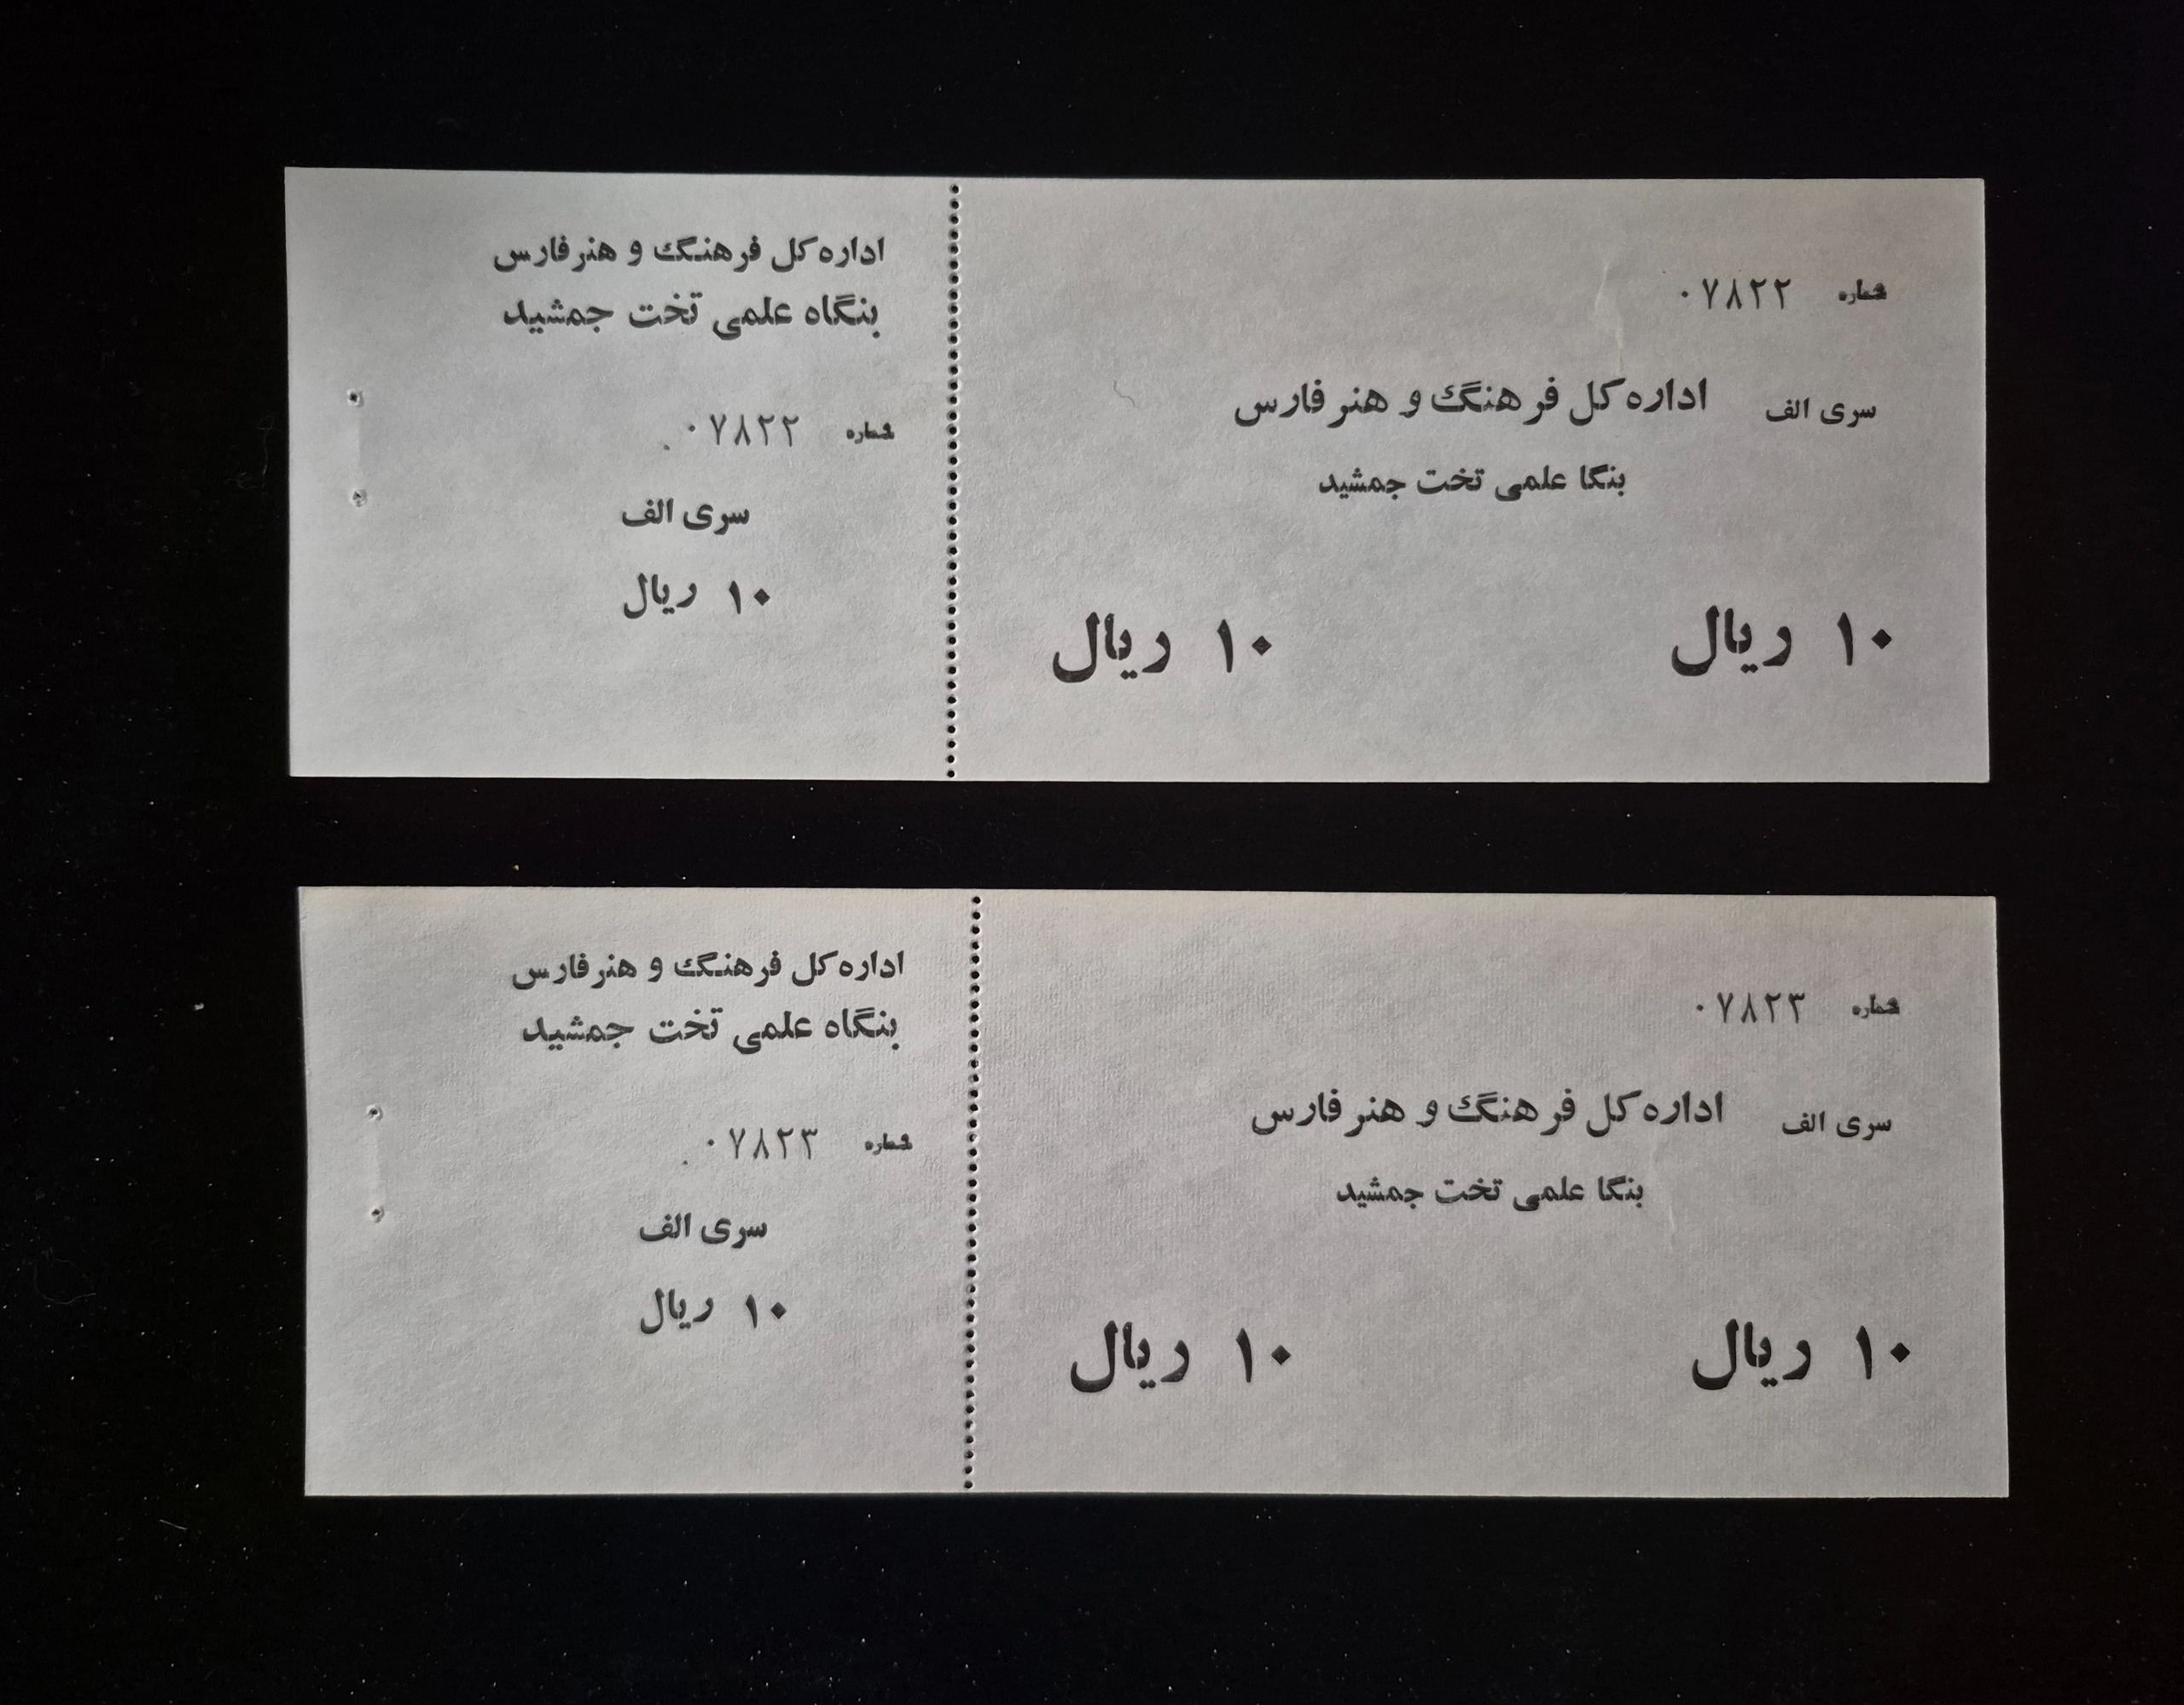 شماره ۰۷۸۲۲
سری الف اداره کل فرهنگ و هنر فارس
بنگا علمی تخت جمشید
۱۰ ریال ۱۰ ریال
اداره کل فرهنگ و هنر فارس
بنگاه علمی تخت جمشید
شماره ۰۷۸۲۲
سری الف
۱۰ ریال
شماره ۰۷۸۲۳
سری الف اداره کل فرهنگ و هنر فارس
بنگا علمی تخت جمشید
۱۰ ریال ۱۰ ریال
اداره کل فرهنگ و هنر فارس
بنگاه علمی تخت جمشید
شماره ۰۷۸۲۳
سری الف
۱۰ ریال